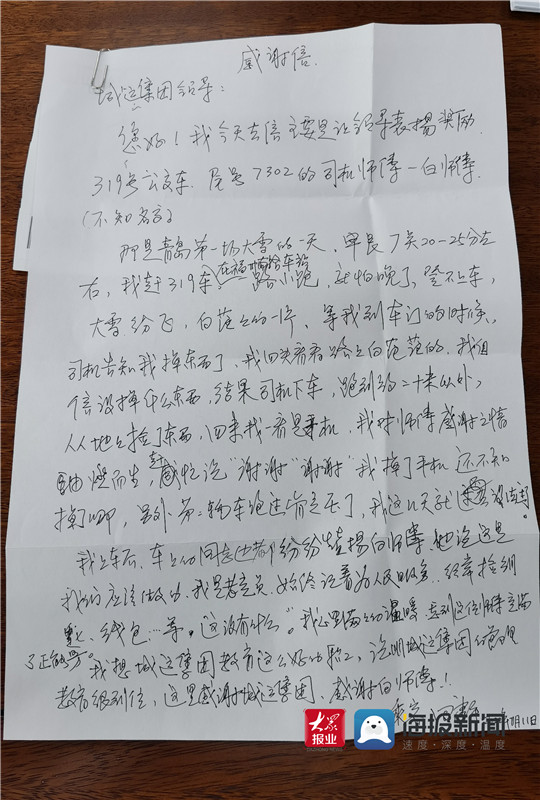 感谢信.
城运集团领导:
您好!我今天去信主要是让领导表扬奖励
319号公交车.尾号7302的司机师傅—白师傅.
(不知名字)
那是青岛第一场大雪的一天,早晨7点20-25分左
右,我赶319车,一路小跑,就怕晚了,登不上车,
大雪纷飞,白茫茫的一片.等我到车门的时候,
司机告知我掉东西了,我回头看看路上白茫茫的.我相
信没掉什么东西,结果司机下车,跑到约二十米以外,
从地上捡了东西,回来我一看是手机,我对师傅感谢之情
油然而生,赶忙说"谢谢""谢谢"我掉了手机还不知
掉哪呢,另外第二辆车跑过肯定压了,我这几天就
我上车后.车上的同志也都纷纷赞扬白师傅.他说这是
我们应该做的.我是老党员,始终记着为人民服务.经常捡到
钱包...等."这没有什么".我心里满满的温暖
了正能量.我想城运集团教育这么好的职工,说明城运集团的管理
教育很到位,这里感谢城运集团.感谢白师傅!
11日
大众
报业
海报新闻
速度·深度·温度